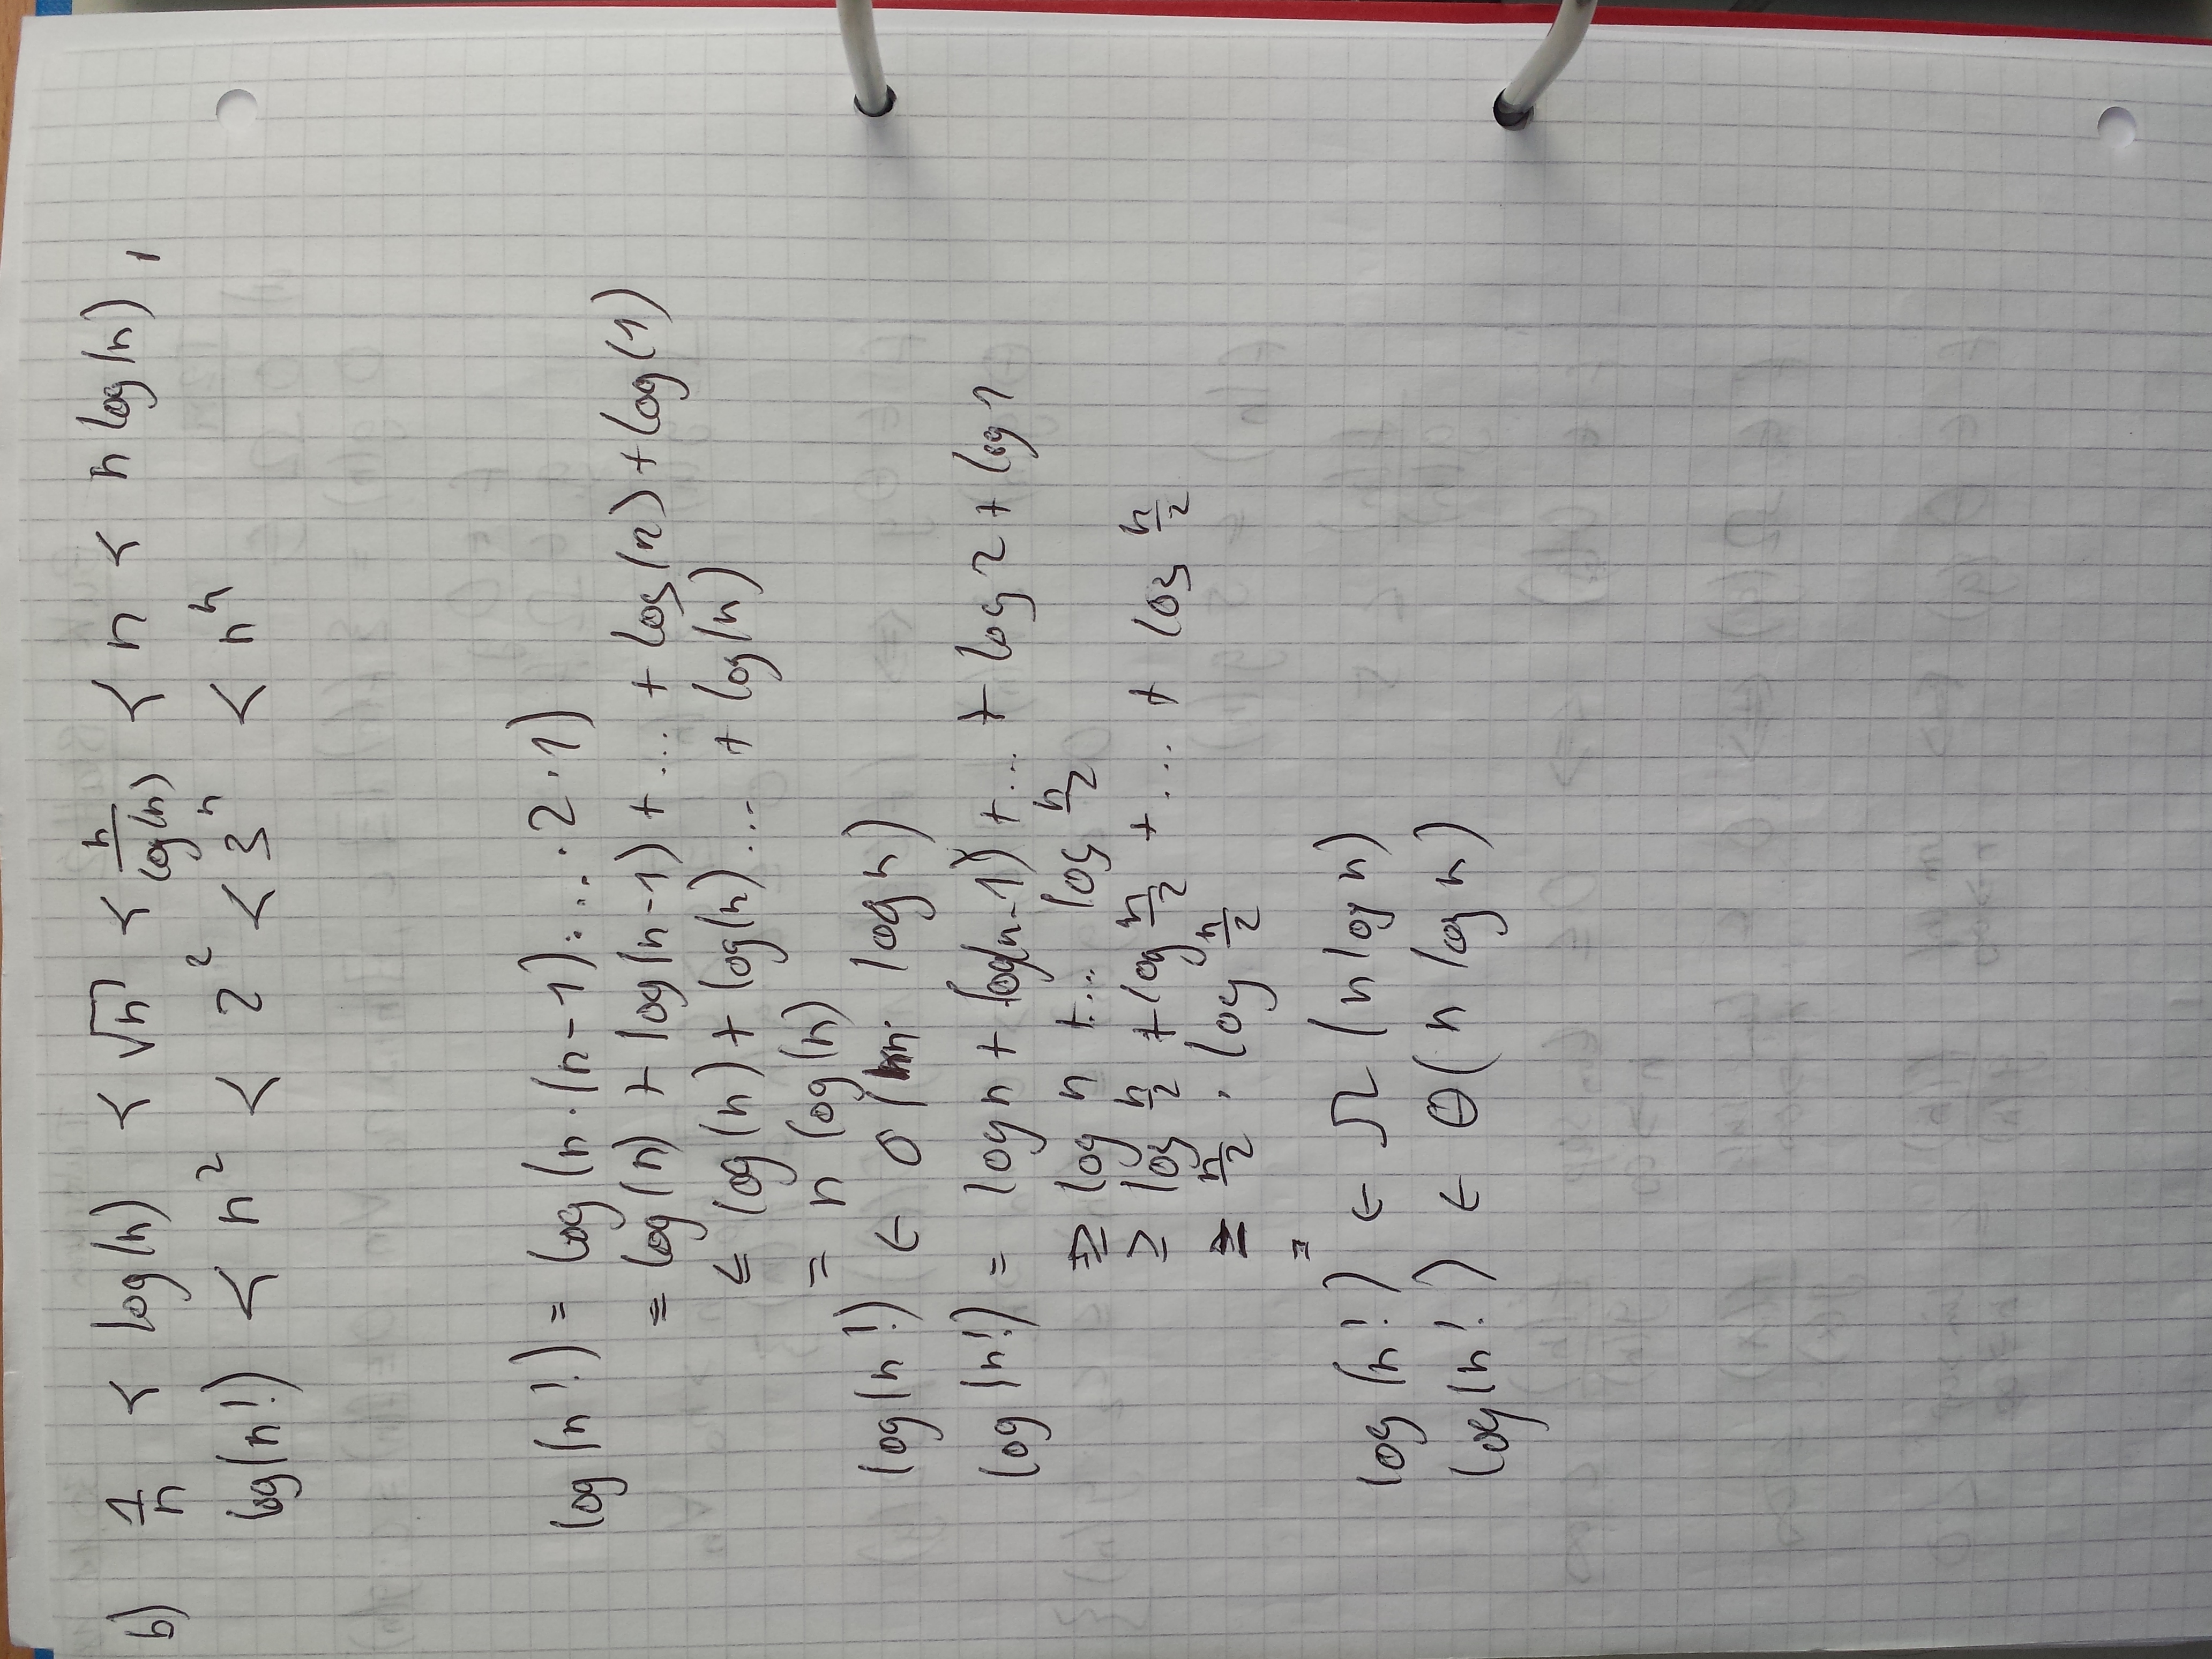 b) 1/n < log(n) < √n < n/log(n) < n < n log(n),
log(n!) < n² < 2² < 3ⁿ < nⁿ
log(n!) = log(n·(n-1)·...·2·1)
= log(n) + log(n-1) + ... + log(n) + log(1)
≤ log(n) + log(n) ... + log(n)
= n log(n)
log(n!) ∈ O(n· log n)
log(n!) = log n + log(n-1) + ... + log 2 + log 1
≥ log n + ... log n/2
≥ log n/2 + log n/2 + ... + log n/2
= n/2 · log n/2
=
log(n!) ∈ Ω(n log n)
log(n!) ∈ Θ(n log n)